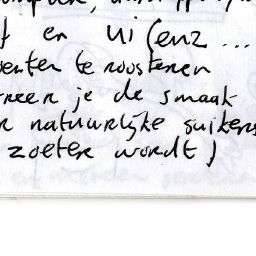 en ui (enz ...
enten te roosteren
reer je de smaak-
n natuurlijke suikers
zoeter wordt)